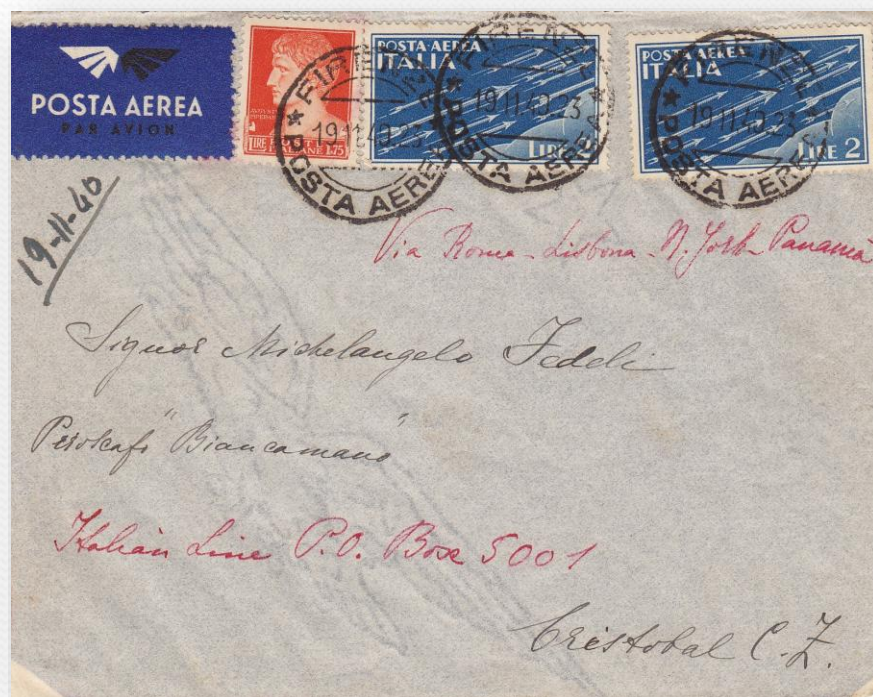 POSTA AEREA
PAR AVION
LIRE ITALIANE 1.75
POSTA AEREA
ITALIA
LIRE 2
POSTA AEREA
ITALIA
LIRE 2
FIRENZE
19.11.40.23
POSTA AEREA
FIRENZE
19.11.40.23
POSTA AEREA
FIRENZE
19.11.40.23
POSTA AEREA
19-11-40
Via Roma - Lisbona - N. York - Panamà
Signor Michelangelo Fedeli
"Biancamano"
Italian Line P.O. Box 5001
Cristobal C.Z.